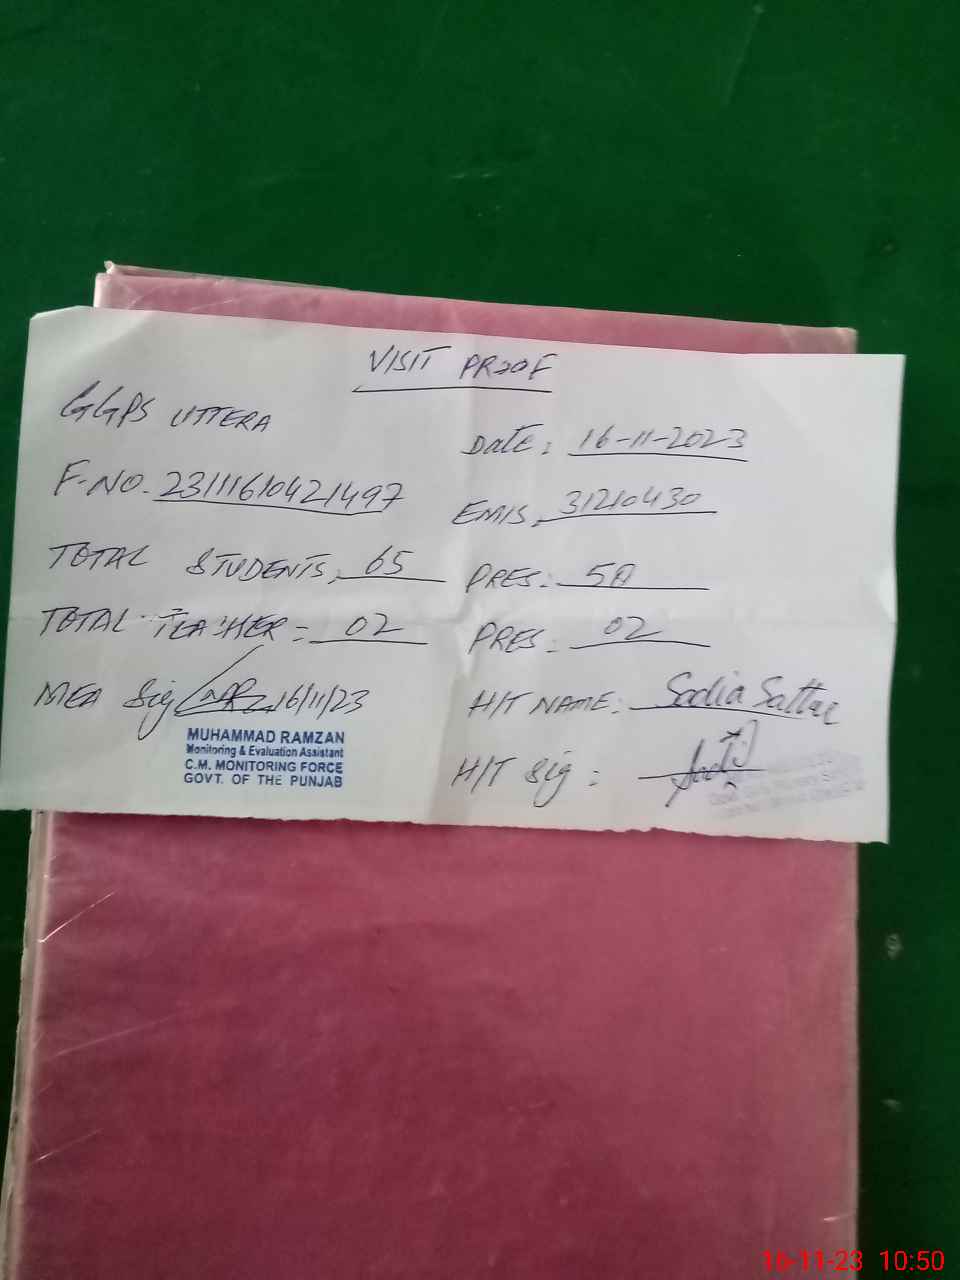 VISIT PROOF
GGPS UTTERA
Date: 16-11-2023
F-NO. 23111610421497
EMIS. 31210430
TOTAL STUDENTS. 65
PRES:
TOTAL TEACHER = 02
PRES. 02
MEA Sig 16/11/23
H/T NAME: Sadia Sattar
MUHAMMAD RAMZAN
Monitoring & Evaluation Assistant
C.M. MONITORING FORCE
GOVT. OF THE PUNJAB
H/T Sig :
16-11-23 10:50